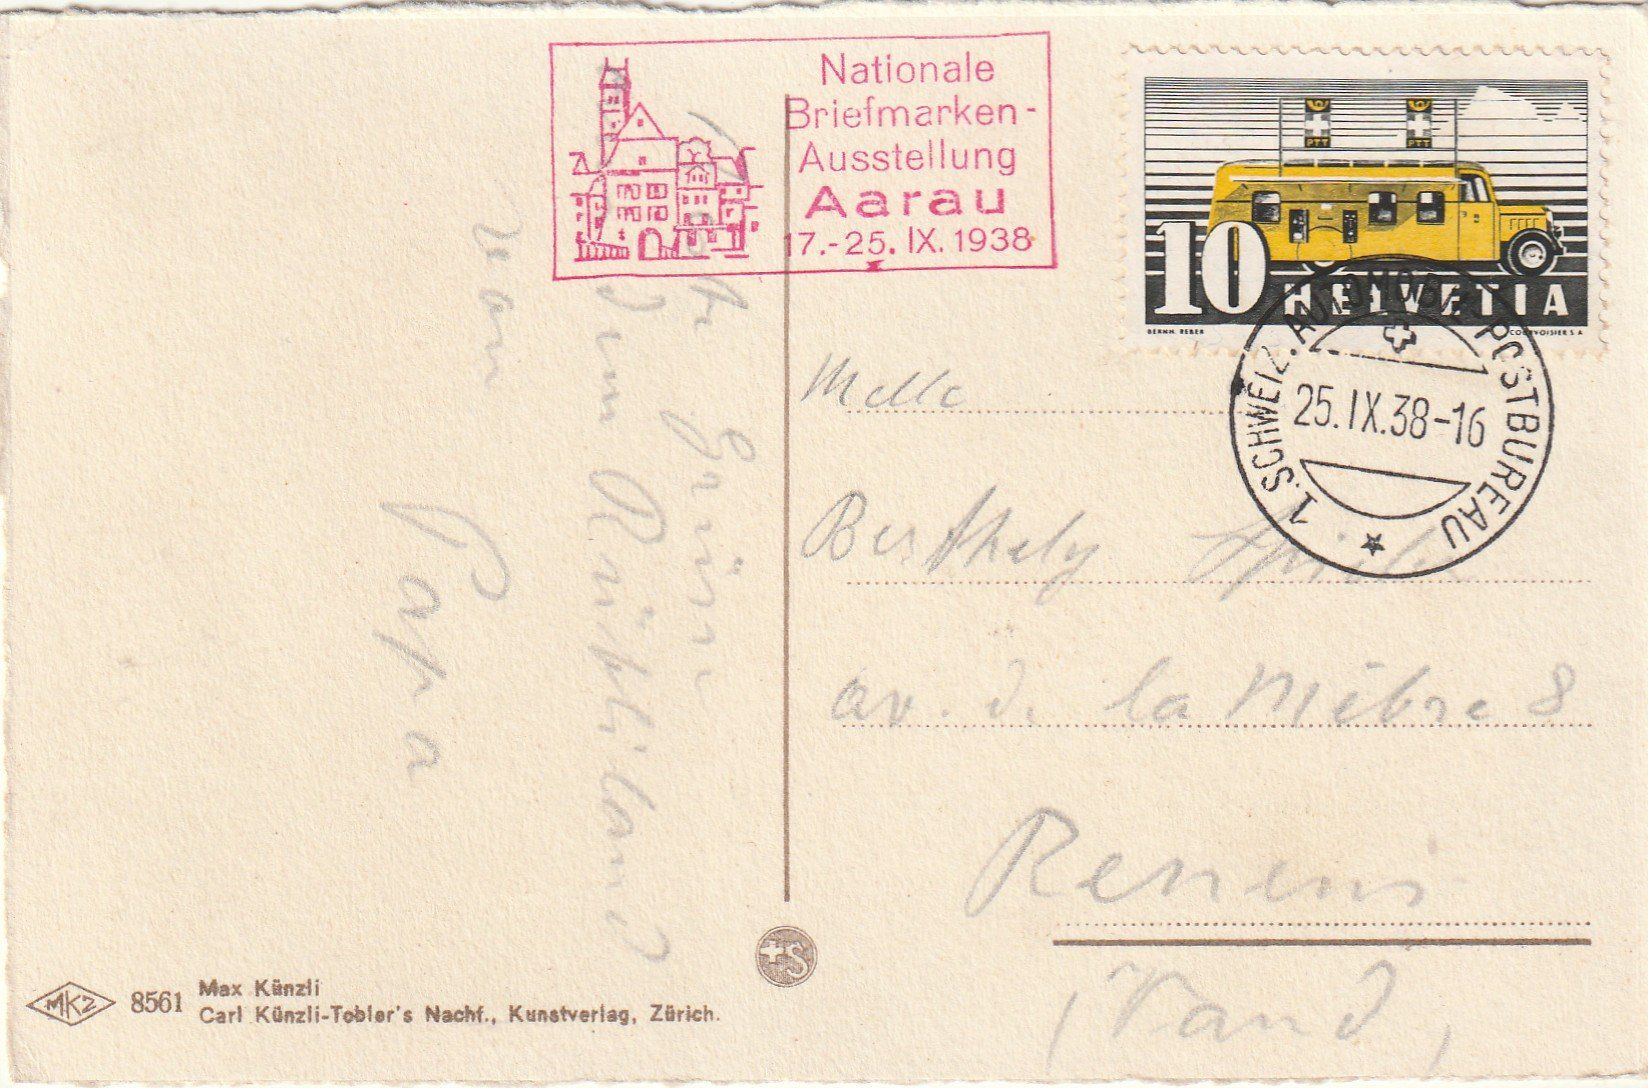 Nationale
Briefmarken-
Ausstellung
Aarau
17.-25. IX. 1938
PTT PTT
10 HELVETIA
BERNH. REBER COURVOISIER S A
1. SCHWEIZ. AUTOMOBIL-POSTBUREAU
25.IX.38-16
Grüsse
dem Rüebliland
von
Papa
Melle
Berthely
av. d. la Mèbre 8
Renens
(Vaud)
+S
MKZ 8561 Max Künzli
Carl Künzli-Tobler's Nachf., Kunstverlag, Zürich.